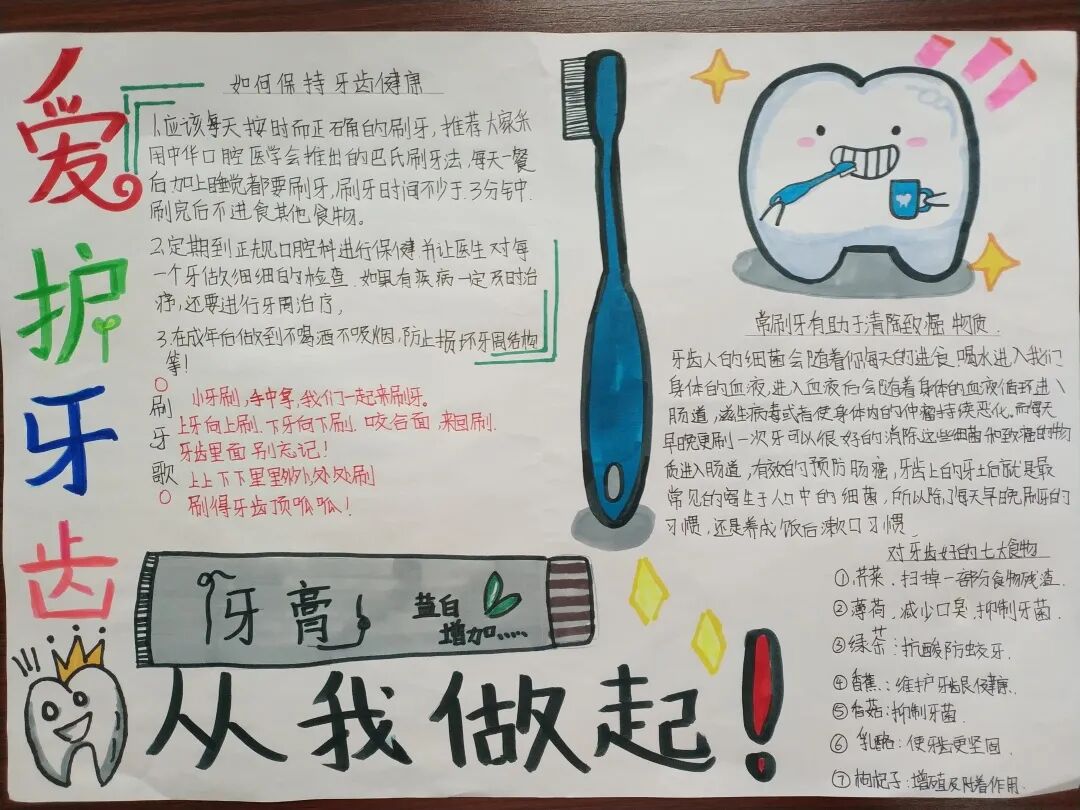 爱护牙齿
如何保持牙齿健康
1.应该每天按时而正确的刷牙,推荐大家采
用中华口腔医学会推出的巴氏刷牙法,每天一餐
后加上睡觉都要刷牙,刷牙时间不少于3分钟.
刷完后不进食其他食物。
2.定期到正规口腔科进行保健并让医生对每
一个牙做细细的检查.如果有疾病一定及时治
疗,还要进行牙周治疗,
3.在成年后做到不喝酒不吸烟,防止损坏牙周结构
等!
刷牙歌
小牙刷,手中拿,我们一起来刷牙。
上牙向上刷.下牙向下刷.咬合面来回刷.
牙齿里面别忘记!
上上下下里里外外处处刷
刷得牙齿顶呱呱!
牙膏
益白
增加.....
从我做起!
常刷牙有助于清除致癌物质.
牙齿人的细菌会随着你每天的进食.喝水进入我们
身体的血液,进入血液后会随着身体的血液循环进入
肠道,滋生病毒或者使身体内的肿瘤持续恶化.而每天
早晚更刷一次牙可以很好的消除这些细菌和致癌的物
质进入肠道,有效的预防肠癌,牙齿上的牙土白就是最
常见的寄生于人口中的细菌,所以除了每天早晚刷牙的
习惯,还是养成饭后漱口习惯.
对牙齿好的七大食物
①.芹菜.扫掉一部分食物残渣.
②薄荷.减少口臭.抑制牙菌.
③绿茶:抗酸防蛟牙.
④香蕉:维护牙龈健康.
⑤香菇:抑制牙菌.
⑥乳酪:使牙齿更坚固.
⑦枸杞子:增殖及附着作用.